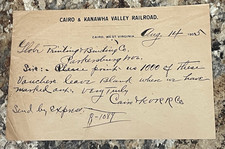 CAIRO & KANAWHA VALLEY RAILROAD.
Aug 14
Globe Printing & Binding Co.
Parkersburg
Sir: Please print us 1000 of these
Vouchers leave Blank where we have
marked out. Very Truly
Cairo & K V R R Co
Send by express